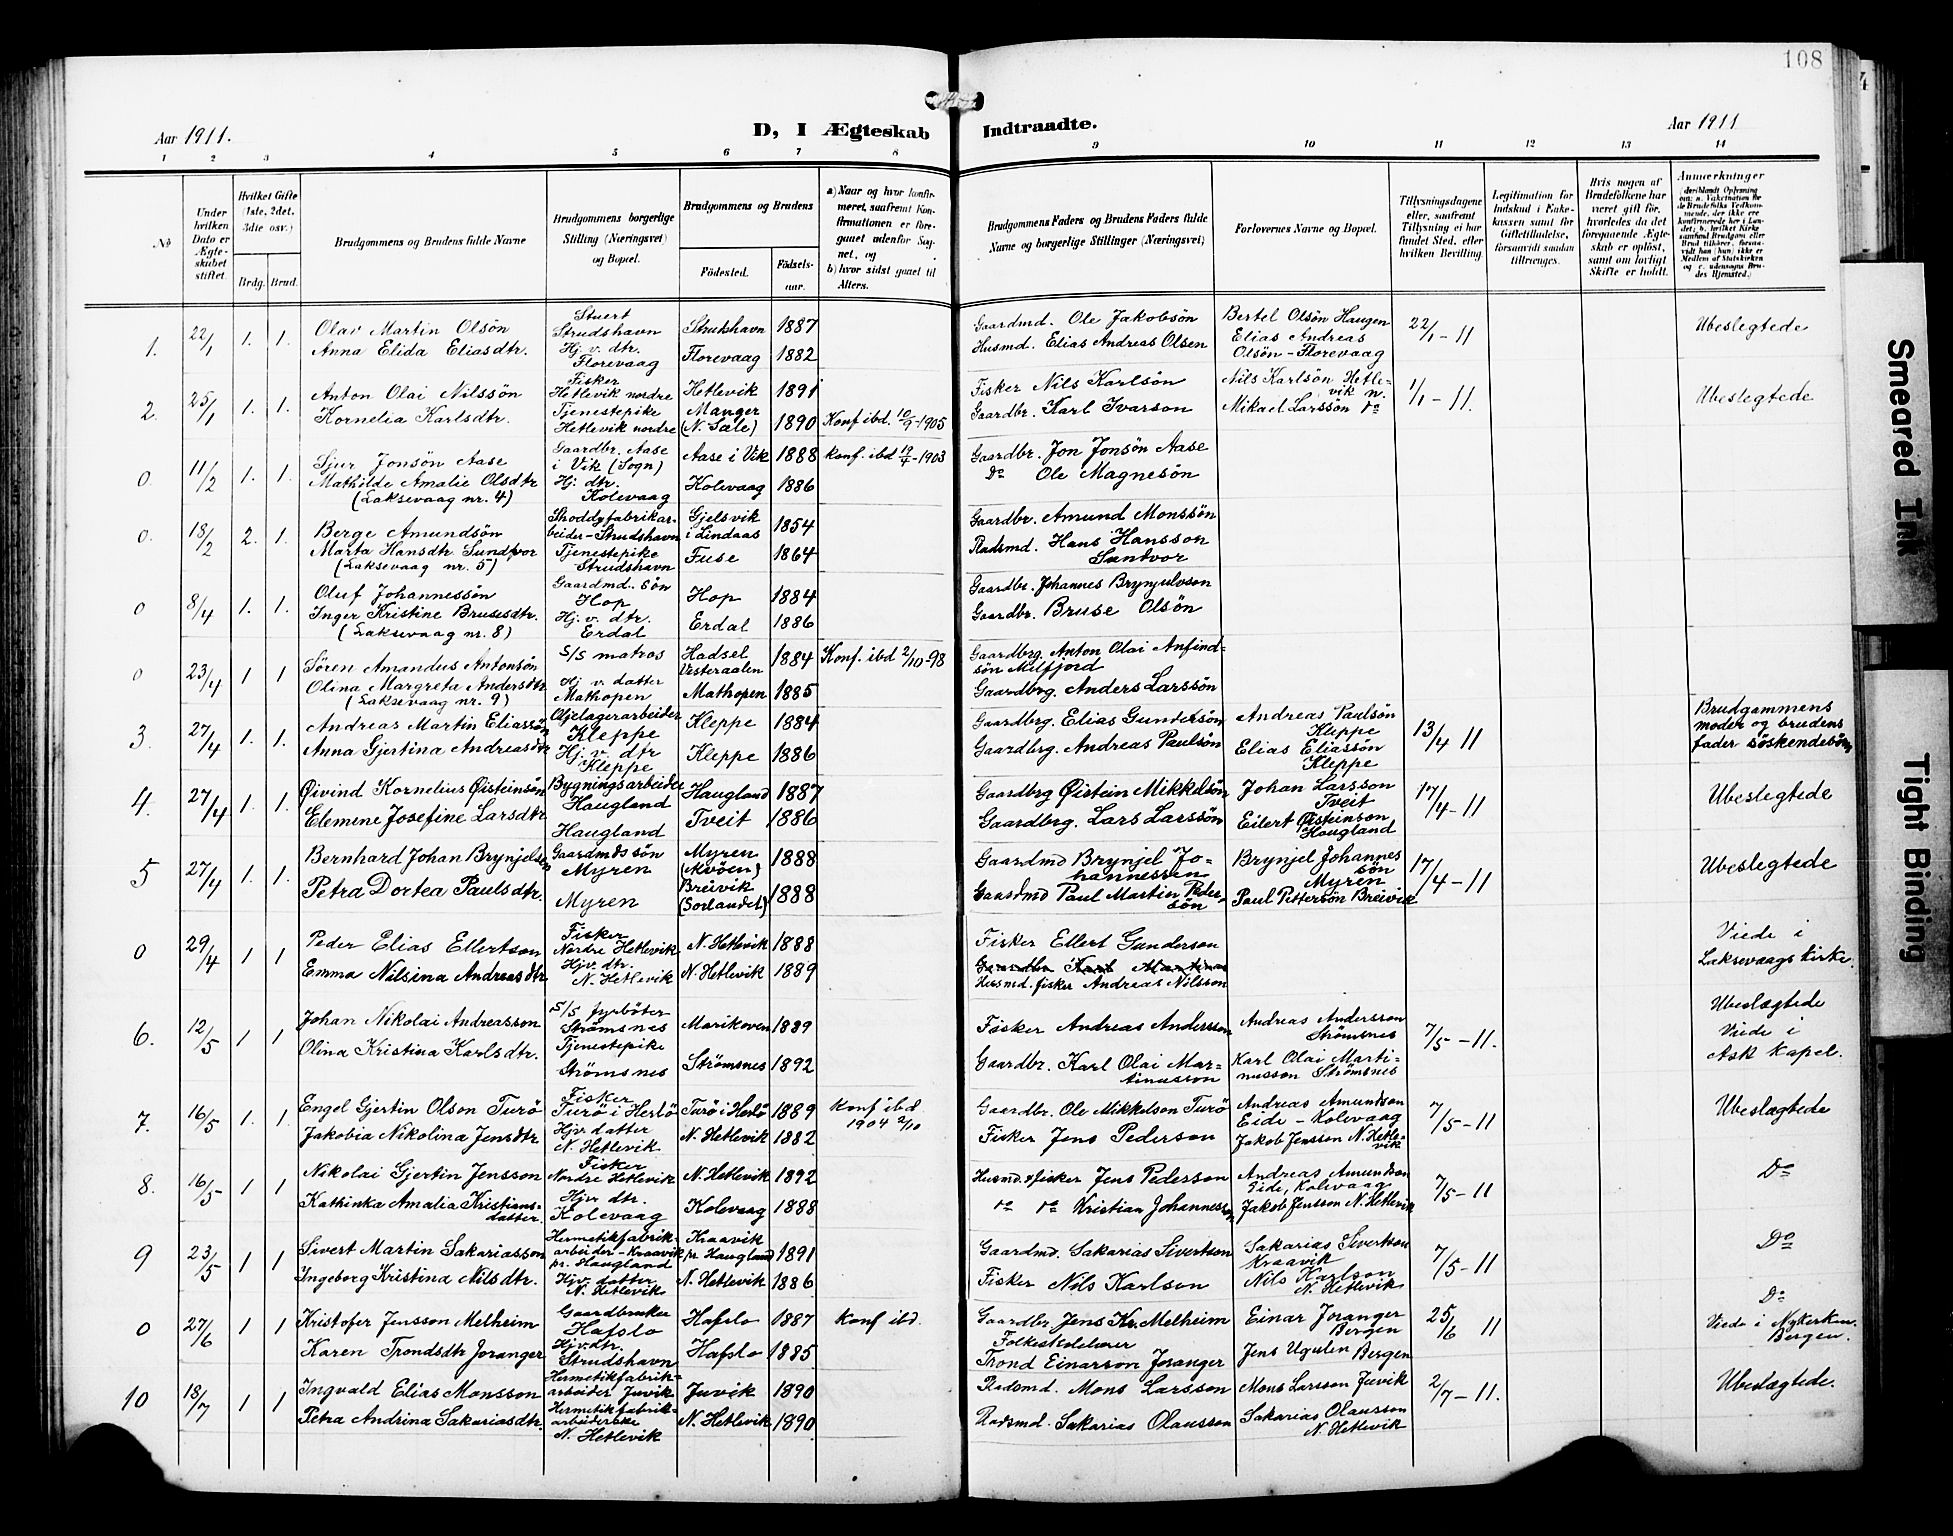 108
Aar 1911.
D, I Ægteskab Indtraadte.
Aar 1911
1 2 3 4 5 6 7 8 9 10 11 12 13 14
№
Under hvilken Dato er Ægteskabet stiftet.
Hvilket Gifte (1ste, 2det, 3die osv.)
Brdg. Brud.
Brudgommens og Brudens fulde Navne
Brudgommens borgerlige Stilling (Næringsvei) og Bopæl.
Brudgommens og Brudens
Fødested. Fødselsaar.
a) Naar og hvor konfirmeret, saafremt Konfirmationen er foregaaet udenfor Sognet, og
b) hvor sidst gaaet til Alters.
Brudgommens Faders og Brudens Faders fulde Navne og borgerlige Stillinger (Næringsvei)
Forlovernes Navne og Bopæl.
Tillysningsdagene eller, saafremt Tillysning ei har fundet Sted, efter hvilken Bevilling.
Legitimation for Indskud i Enkekassen samt for Giftetilladelse, forsaavidt saadan tiltrænges.
Hvis nogen af Brudefolkene har været gift før, hvorledes da det foregaaende Ægteskab er opløst, samt om lovligt Skifte er holdt.
Anmerkninger
1. 22/1 1. 1. Olai Martin Olsön Stuert Strudshavn Strushavn 1887 Gaardmd. Ole Jakobsön Bertel Olsön Haugen 22/1-11 Ubeslegtede
Anna Elida Eliasdtr. Hj. v. dtr. Florevaag Florevaag 1882 Husmd. Elias Andreas Olsen Elias Andreas Olsön-Florevaag
2. 25/1 1. 1. Anton Olai Nilssön Fisker Hetlevik nordre Hetlevik 1891 Fisker Nils Karlsön Nils Karlsön Hetlevik n. 1/1-11. Ubeslegtede
Kornelia Karlsdtr. Tjenestepike Hetlevik nordre Manger (N. Sæle) 1890 Konf ibd. 10/9-1905 Gaardbr. Karl Ivarson Mikael Larssön do
0 11/2 1. 1. Sjur Jonsön Aase Gaardbr. Aase i Vik (Sogn) Aase i Vik 1888 Konf. ibd 19/4-1903 Gaardbr. Jon Jonsön Aase
Mathilde Amalie Olsdtr (Laksevaag nr. 4) Hj. dtr. Kolevaag Kolevaag 1886 Do Ole Magnesön
0. 18/2 2. 1. Berge Amundsön Shoddyfabrikarbeider-Strudshavn Gjelsvik i Lindaas 1854 Gaardbr. Amund Monssön
Marta Hansdtr Sundvor (Laksevaag nr. 5) Tjenestepike Strudshavn Fuse 1864 Pladsmd. Hans Hansson Santvor
0 8/4 1. 1. Oluf Johannessön Gaardmd. sön Hop Hop 1884 Gaardbr. Johannes Brynjulvson
Inger Kristine Brusesdtr. (Laksevaag nr. 8) Hj. v. dtr. Erdal Erdal 1886 Gaardbr. Bruse Olsön
0 23/4 1 1 Sören Amandus Antonsön S/S matros Hadsel Vesteraalen 1884 Konf. ibd 2/10-98 Gaardbrg. Anton Olai Anfindsön Melfjord
Olina Margreta Andersdtr (Laksevaag nr. 9) Hj v. datter Mathopen Mathopen 1885 Gaardbrg. Anders Larssön
3. 27/4 1. 1. Andreas Martin Eliassön Oljelagerarbeider Kleppe Kleppe 1884 Gaardbrg. Elias Gundersön Andreas Paulsön Kleppe 13/4 11 Brudgammens moder og brudens fader söskendebörn
Anna Gjertina Andreasdtr Hj. v. dtr Kleppe Kleppe 1886 Gaardbrg. Andreas Paulsön Elias Eliassön Kleppe
4. 27/4 1. 1. Øivind Kornelius Øisteinsön Bygningsarbeider Haugland Haugland 1887 Gaardbrg Øistein Mikkelsön Johan Larsson Tveit 17/4-11 Ubeslegtede
Elemene Josefine Larsdtr Haugland Tveit 1886 Gaardbrg. Lars Larssön Eilert Øisteinson Haugland
5 27/4 1. 1. Bernhard Johan Brynjelsen Gaardmds sön Myren Myren (Alvöen) 1888 Gaardmd Brynjel Johannessen Brynjel Johannessön Myren 17/4-11 Ubeslegtede
Petra Dortea Paulsdtr. Myren Breivik (Sorlandet) 1888 Gaardmd Paul Martin Pedersön Paul Pettersön Breivik
0 29/4 1 1 Peder Elias Ellertson Fisker Nordre Hetlevik N. Hetlevik 1888 Fisker Ellert Gunderson Viede i Laksevaags kirke.
Emma Nilsina Andreasdtr Hjv. dtr. N. Hetlevik N. Hetlevik 1889 Husmd. fisker Andreas Nilsson
6. 12/5 1 1 Johan Nikolai Andreasson S/S fyrböter Strömsnes Marikoven 1889 Fisker Andreas Andersson Andreas Andersson Strömsnes 7/5-11. Ubeslægtede Viede i Ask kapel.
Olina Kristina Karlsdtr. Tjenestepike Strömsnes Strömsnes 1892 Gaardbr. Karl Olai Martinusson Karl Olai Martinusson Strömsnes
7. 16/5 1. 1. Engel Gjertin Olson Turö Fisker Turö i Herlö Turö i Herlö 1889 Konf ibd. 1904 2/10 Gaardbr. Ole Mikkelson Turö Andreas Amundson Eide-Kolevaag 7/5-11 Ubeslægtede
Jakobia Nikolina Jensdtr Hjv. datter N. Hetlevik N. Hetlevik 1882 Fisker Jens Pederson Jakob Jensson N. Hetlevik
8. 16/5 1 1 Nikolai Gjertin Jensson Fisker Nordre Hetlevik N. Hetlevik 1892 Husmd. fisker Jens Pederson Andreas Amundson Eide, Kolevaag 7/5-11 Do
Kathinka Amalia Kristiansdatter. Hjv. dtr. Kolevaag Kolevaag 1888 do do Kristian Johannesson Jakob Jensson N. Hetlevik
9 23/5 1 1 Sivert Martin Sakariasson Hermetikfabrikarbeider-Kraavik pr. Haugland Kraavik pr. Haugland 1891 Gaardmd. Sakarias Sivertson Sakarias Sivertson Kraavik 7/5-11 Do
Ingeborg Kristina Nilsdtr. Hjv. datter N. Hetlevik N. Hetlevik 1886 Fisker Nils Karlson Nils Karlson N. Hetlevik
0 27/6 1 1 Kristofer Jensson Melheim Gaardbruker Hafslo Hafslo 1887 Konf ibd. Gaardbr. Jens Kr. Melheim Einar Joranger Bergen 25/6 11 Do Viede i Nykirken Bergen.
Karen Trondsdtr Joranger Hjv. dtr. Strudshavn Hafslo 1885 Folkeskolelærer Trond Einarson Joranger Jens Ugulen Bergen
10 18/7 1 1 Ingvald Elias Monsson Hermetikfabrikarbeider Juvik Juvik 1890 Pladsmd. Mons Larsson Mons Larsson Juvik 2/7-11. Ubeslægtede.
Petra Andrina Sakariasdtr. Hermetikfabrikarbeiderske N. Hetlevik N. Hetlevik 1890 Pladsmd. Sakarias Olausson Sakarias Olausson N. Hetlevik
Smeared Ink
Tight Binding